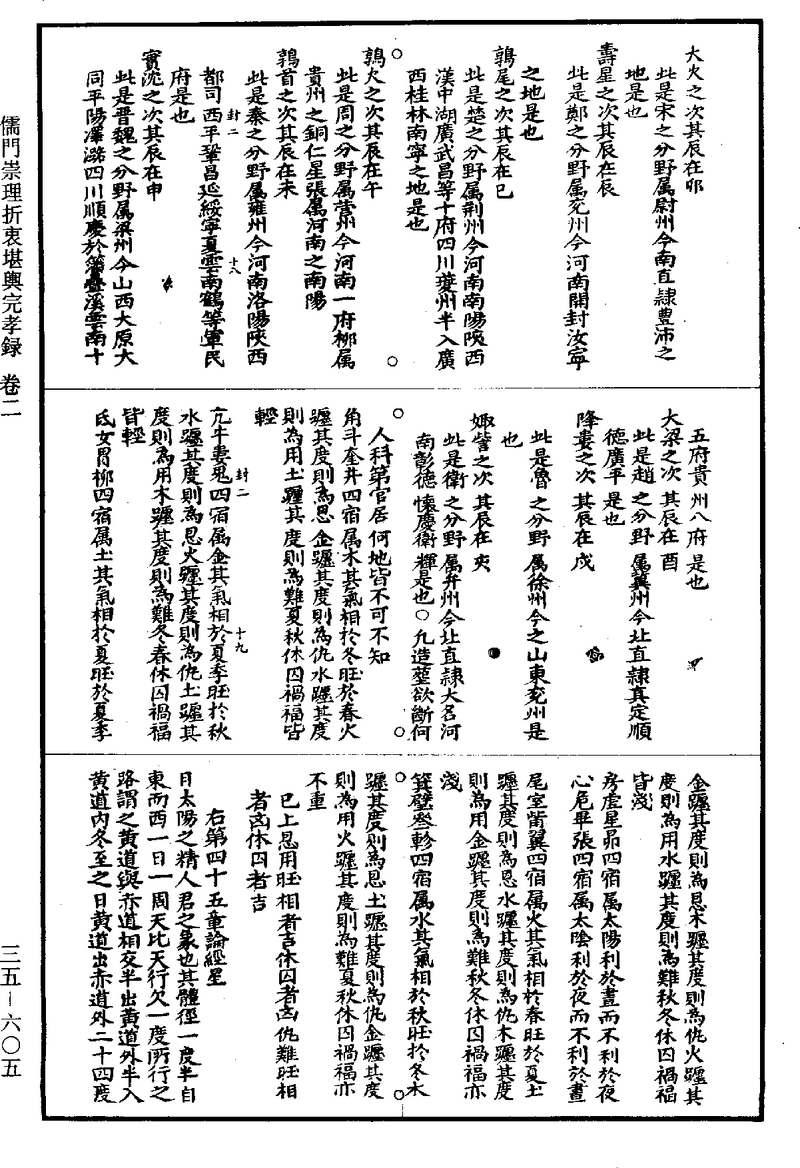 大火之次其辰在卯
此是宋之分野属尉州今南直隷豊沛之
地是也
壽星之次其辰在辰
此是鄭之分野属兖州今河南開封汝寧
之地是也
鶉尾之次其辰在巳
此是楚之分野属荆州今河南南陽陜西
漢中湖廣武昌等十府四川夔州半入廣
西桂林南寧之地是也
鶉火之次其辰在午
此是周之分野属營州今河南一府柳属
貴州之銅仁星張属河南之南陽
鶉首之次其辰在未
此是秦之分野属雍州今河南洛陽陜西
都司西平鞏昌延綏寧夏雲南鶴等軍民
府是也
實沈之次其辰在申
此是晋魏之分野属梁州今山西大原大
同平陽澤潞四川順慶於畨疊溪雲南十
封二
十八
五府貴州八府是也
大梁之次其辰在酉
此是趙之分野属冀州今北直隷真定順
德廣平是也
降婁之次其辰在戌
此是魯之分野属徐州今之山東兖州是
也
娵訾之次其辰在亥
此是衛之分野属并州今北直隷大名河
南彰德懷慶衛輝是也○凢造塟欲斷何
人科第官居何地皆不可不知
角斗奎井四宿属木其氣相於冬旺於春火
躔其度則為恩金躔其度則為仇水躔其度
則為用土躔其度則為難夏秋休囚禍福皆
輕
亢牛婁鬼四宿属金其氣相於夏季旺於秋
水躔其度則為恩火躔其度則為仇土躔其
度則為用木躔其度則為難冬春休囚禍福
皆輕
氐女胃柳四宿属土其氣相於夏旺於夏季
封二
十九
金躔其度則為恩木躔其度則為仇火躔其
度則為用水躔其度則為難秋冬休囚禍福
皆淺
房虚星昴四宿属太陽利於晝而不利於夜
心危畢張四宿属太陰利於夜而不利於晝
尾室觜翼四宿属火其氣相於春旺於夏土
躔其度則為恩水躔其度則為仇木躔其度
則為用金躔其度則為難秋冬休囚禍福亦
淺
箕壁叅軫四宿属水其氣相於秋旺於冬木
躔其度則為恩土躔其度則為仇金躔其度
則為用火躔其度則為難夏秋休囚禍福亦
不重
已上恩用旺相者吉休囚者凶仇難旺相
者凶休囚者吉
右第四十五章論經星
日太陽之精人君之象也其體徑一度半自
東而西一日一周天比天行欠一度所行之
路謂之黄道與赤道相交半出黄道外半入
黄道内冬至之日黄道出赤道外二十四度
儒門崇理折衷堪輿完孝録 卷二
三五－六〇五